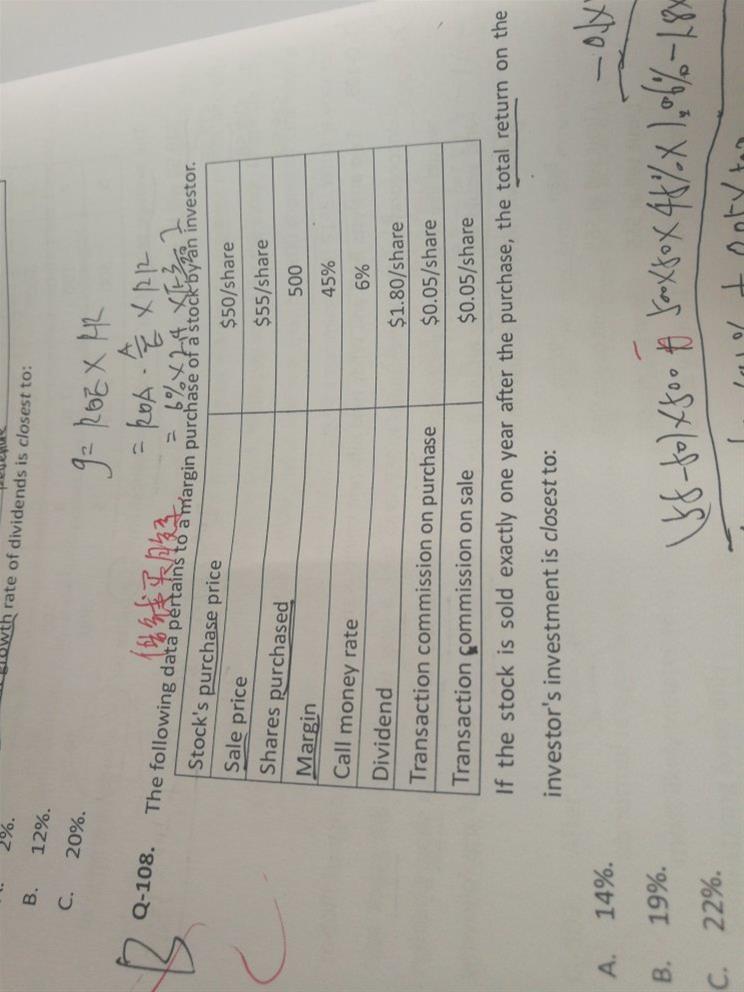 growth rate of dividends is closest to:
2%.
B. 12%.
C. 20%.
g = ROE × RR
= ROA · A/E × RR
= 6% × 2.4 ×
借钱买股票
B
Q-108. The following data pertains to a margin purchase of a stock by an investor.
Stock's purchase price $50/share
Sale price $55/share
Shares purchased 500
Margin 45%
Call money rate 6%
Dividend $1.80/share
Transaction commission on purchase $0.05/share
Transaction commission on sale $0.05/share
If the stock is sold exactly one year after the purchase, the total return on the
investor's investment is closest to:
A. 14%.
B. 19%.
C. 22%.
(55-50)×500